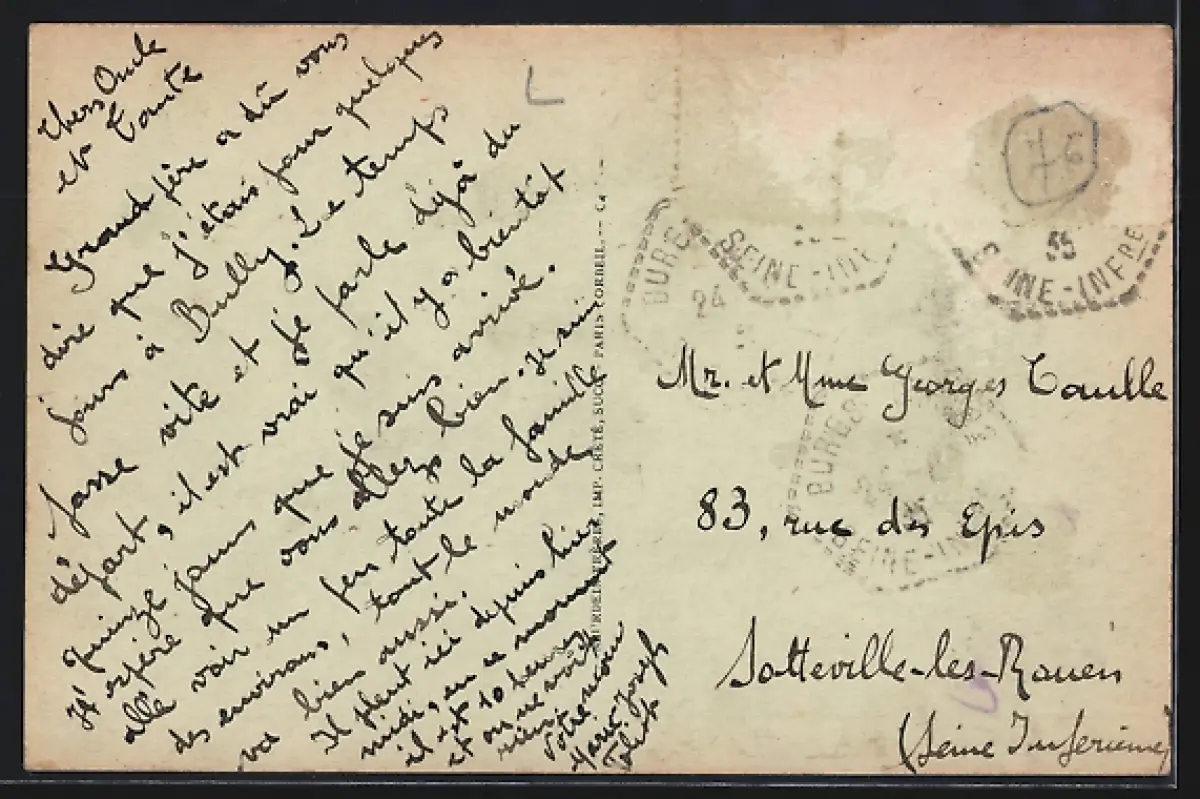 Chers Oncle
et Tante
Grand père a dû vous
dire que j'étais pour quelques
jours à Bully. Le temps
passe vite et je parle déjà du
départ, il est vrai qu'il y a bientôt
quinze jours que je suis arrivé.
J'espère que vous allez bien. Je suis
allé voir un peu toute la famille
des environs, tout le monde
va bien aussi.
Il pleut ici depuis hier
midi, en ce moment
il est 10 heures
et on ne voit
rien.
Votre neveu
Marie-Joseph
L
IMP. CRÉTÉ, SUCC. PARIS CORBEIL
76
BURES
SEINE-INF
24
35
SEINE-INFRE
Mr. et Mme Georges Taulle
BURES
SEINE-IN
83, rue des Epis
Sotteville-les-Rouen
(Seine Inferieure)